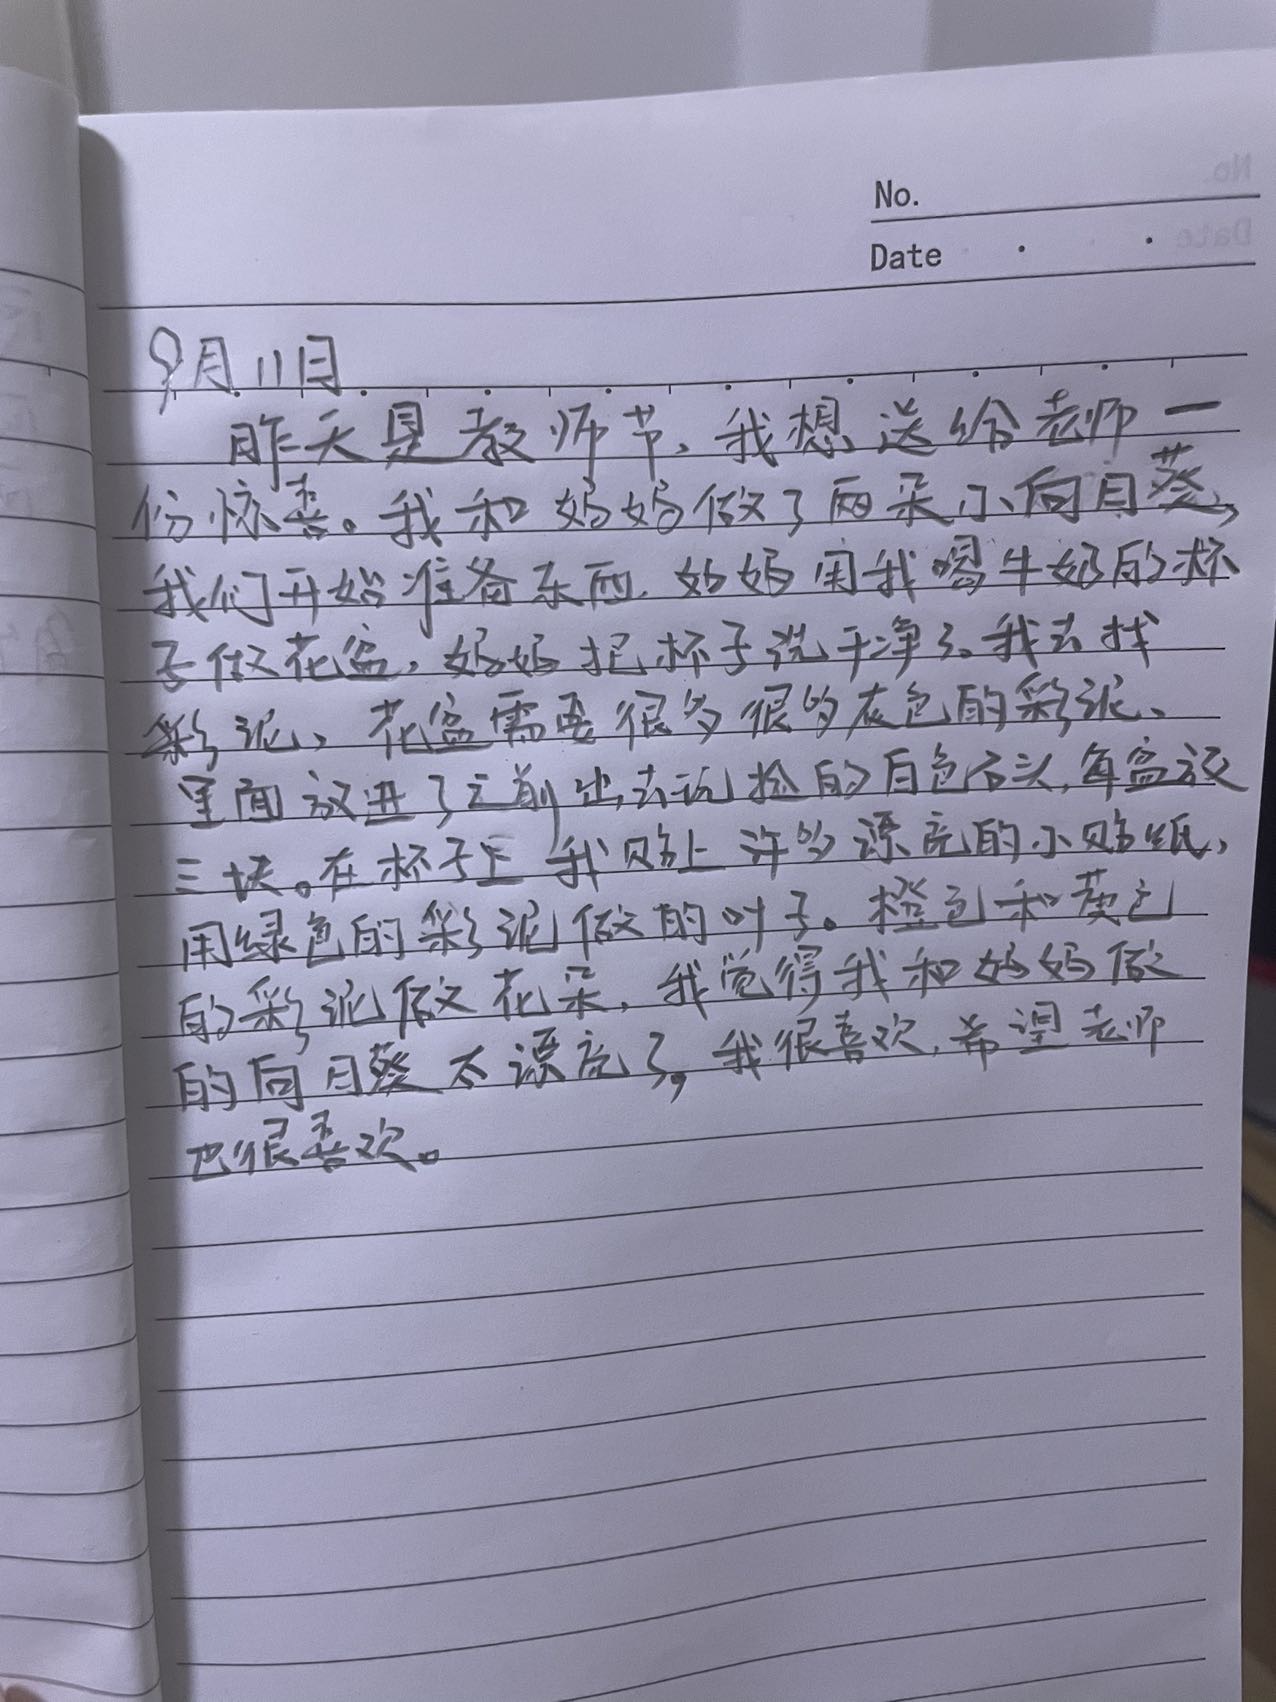 No.
Date
9月11日
昨天是教师节，我想送给老师一
份惊喜。我和妈妈做了两朵小向日葵，
我们开始准备东西，妈妈用我喝牛奶的杯
子做花盆，妈妈把杯子洗干净了。我去找
彩泥、花盆需要很多很多灰色的彩泥、
里面放进了之前出去玩捡的白色石头，每盆放
三块。在杯子上我贴上许多漂亮的小贴纸，
用绿色的彩泥做的叶子。橙色和黄色
的彩泥做花朵，我觉得我和妈妈做
的向日葵太漂亮了，我很喜欢，希望老师
也很喜欢。